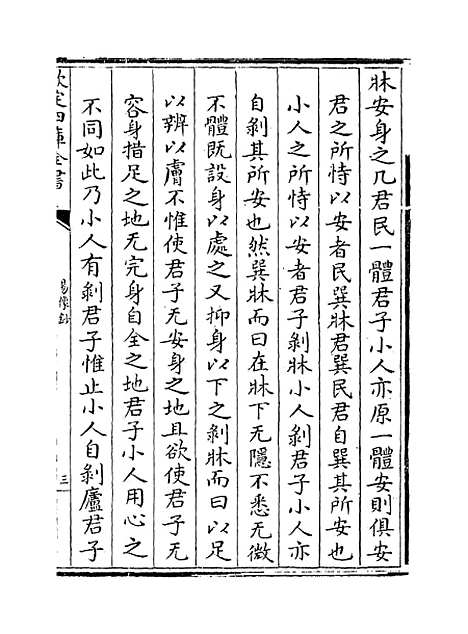 牀安身之几君民一體君子小人亦原一體安則俱安
君之所恃以安者民巽牀君巽民君自巽其所安也
小人之所恃以安者君子剝牀小人剝君子小人亦
自剝其所安也然巽牀而曰在牀下无隱不悉无微
不體既設身以處之又抑身以下之剝牀而曰以足
以辨以膚不惟使君子无安身之地且欲使君子无
容身措足之地无完身自全之地君子小人用心之
不同如此乃小人有剝君子惟止小人自剝廬君子
欽定四庫全書
易像鈔
三